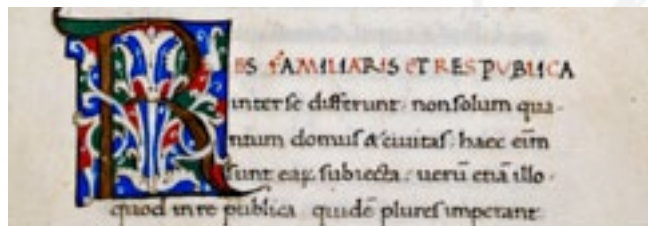 RES FAMILIARIS ET RES PUBLICA
inter se differunt. non solum quan-
ntum domus & ciuitas. haec eim̄
sunt eaꝝ subiecta. uerū etiā illo.
quod in re publica quidē plures imperant